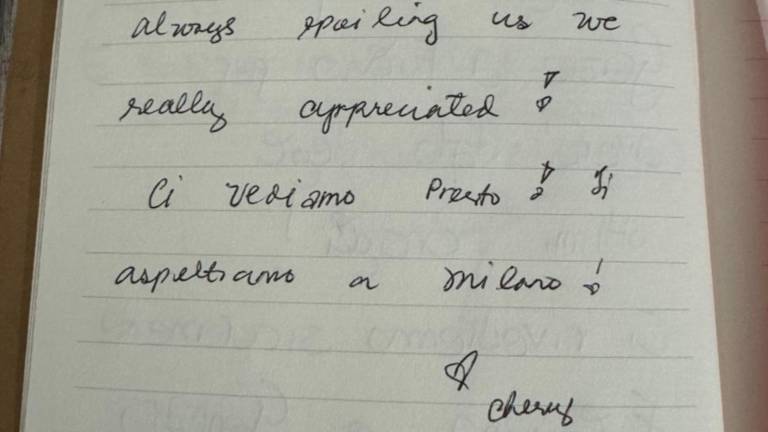 always spoiling us we
really appreciated !
Ci vediamo Presto ! Ti
aspettiamo a milano !